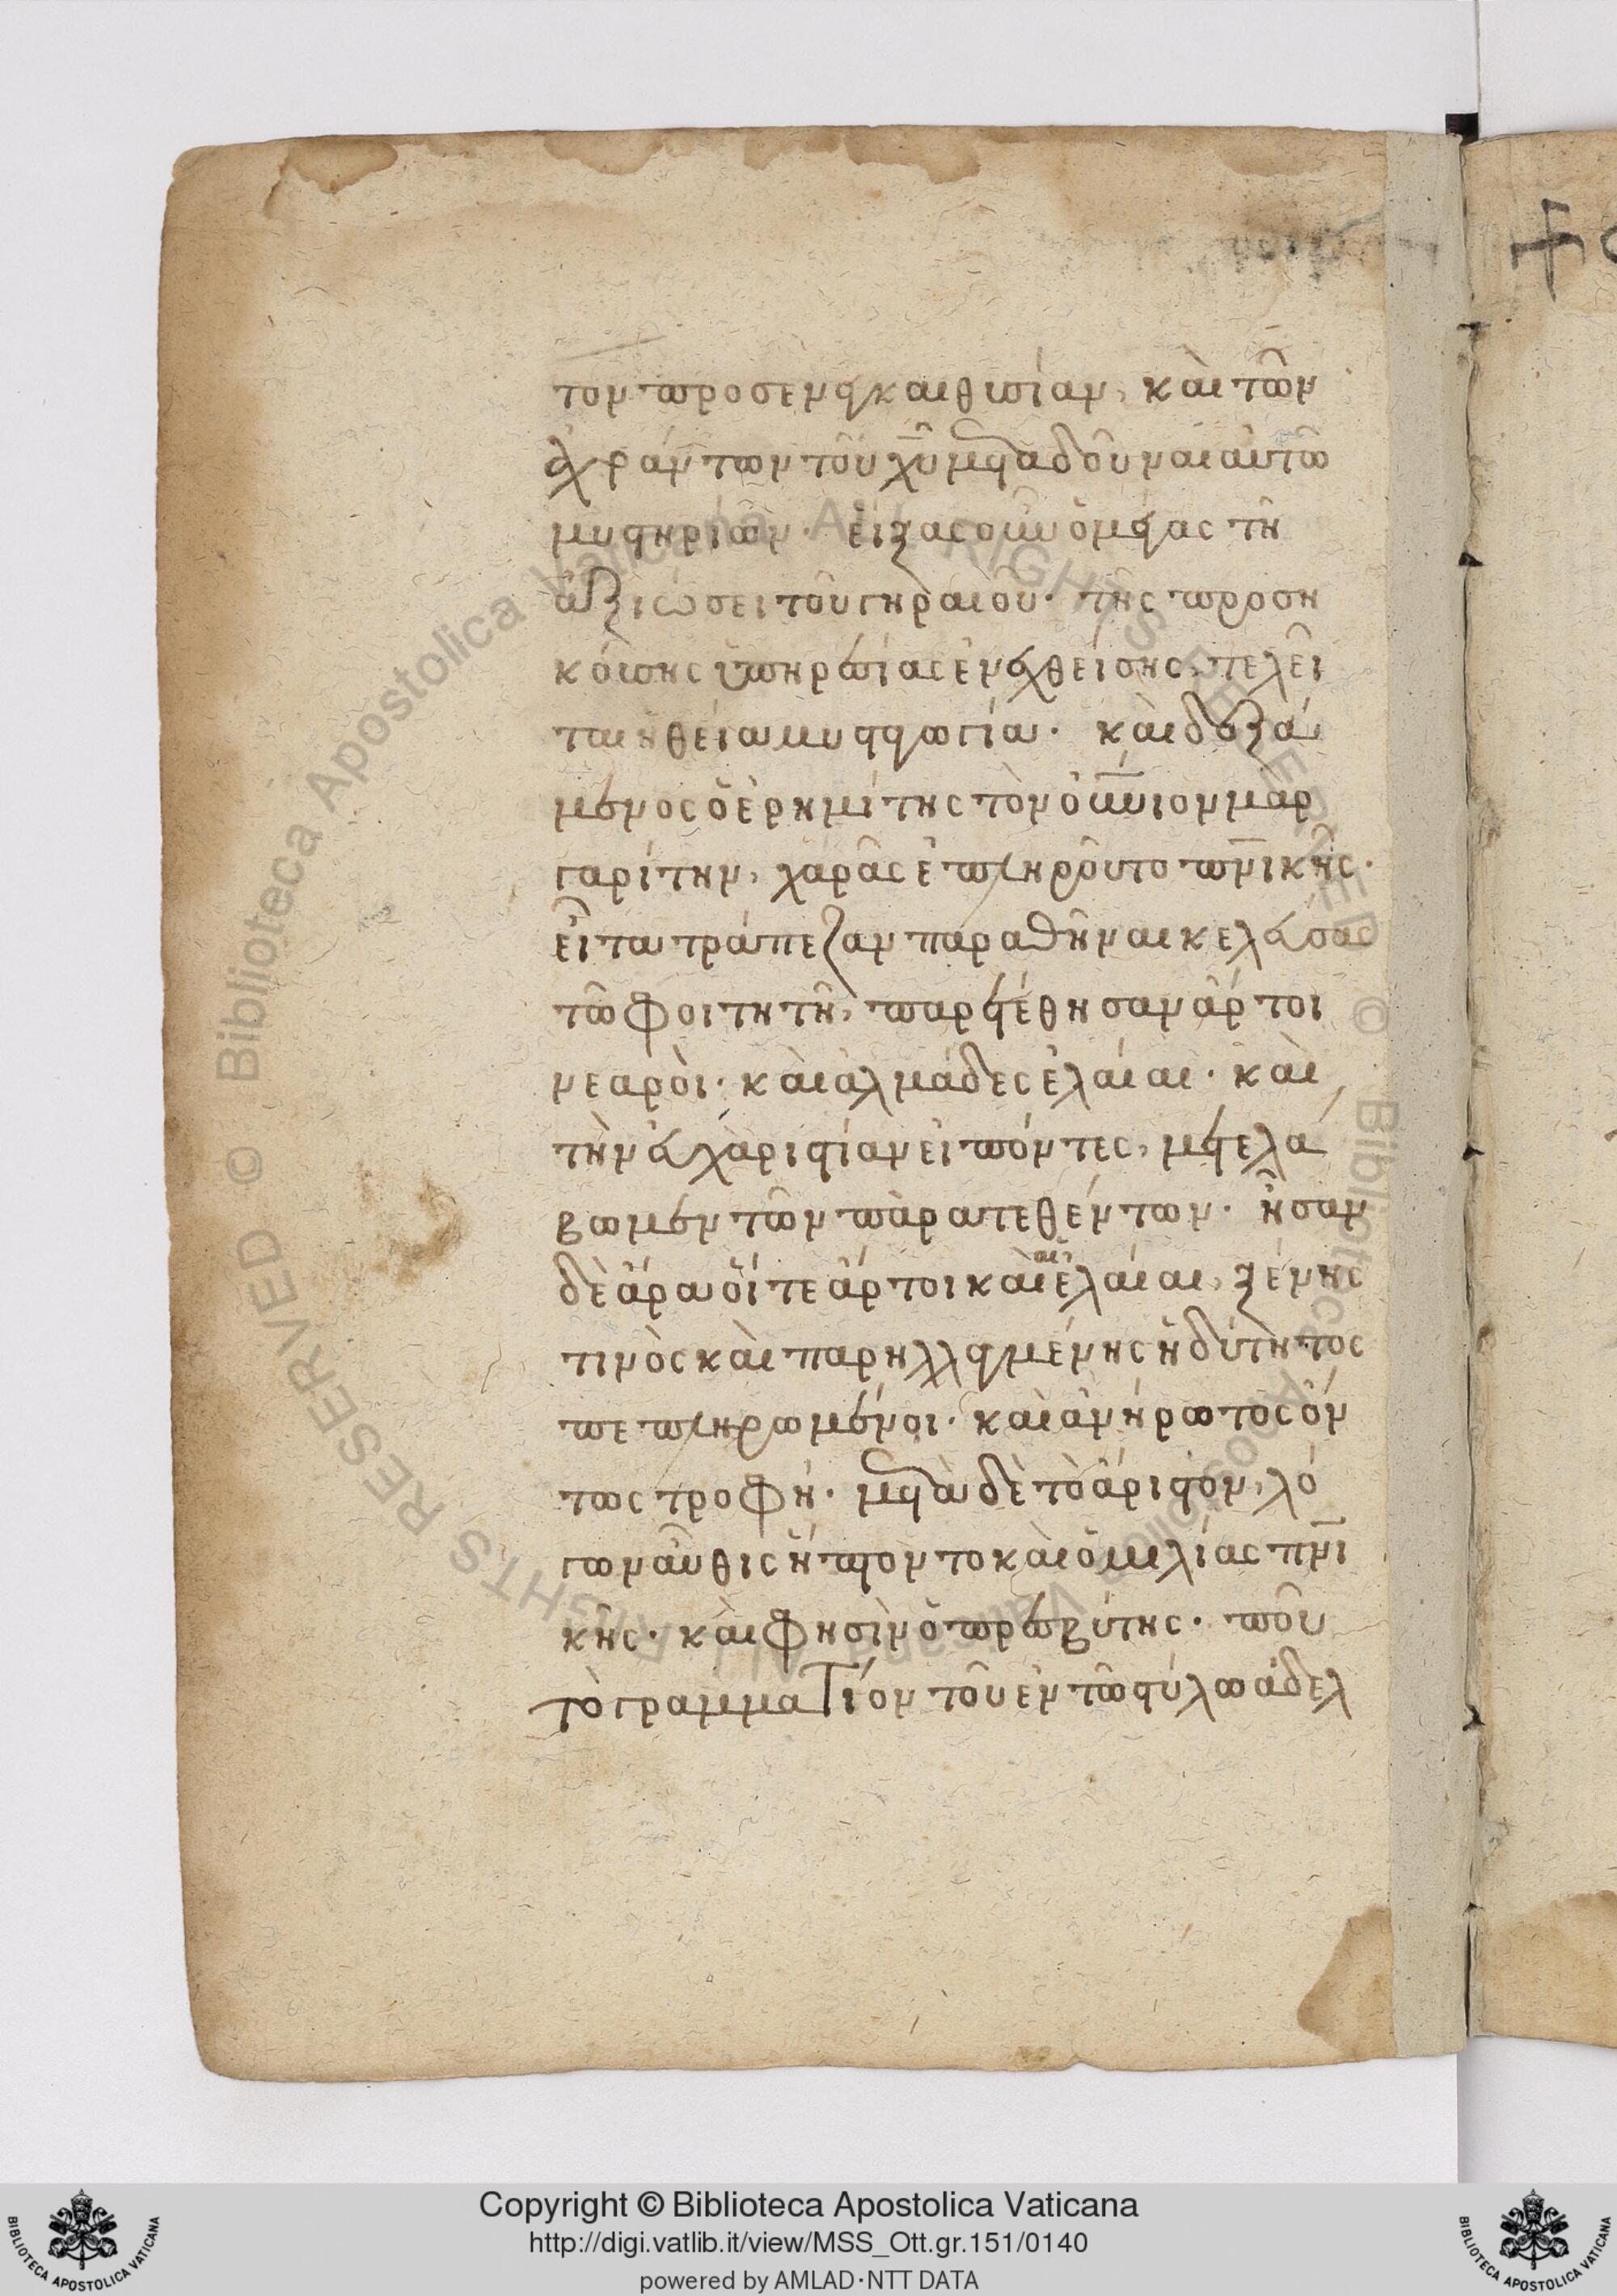 τον προσενεγκαι θυσίαν, καὶ τῶν
ἀχράντων τοῦ χυ̅ μεταδοῦναι αὐτῶ
μυστηρίων. εἴξας οὖν ὁ μέγας τῆ
ἀξιώσει τοῦ γηραιοῦ. τῆς προση
κούσης ὑπηρεσίας ἐναχθείσης, τελεῖ
ται ἡ θεία μυσταγωγία. καὶ δεξά
μενος ὁ ἐρημίτης τὸν οὐνιον μαρ
γαρίτην, χαρᾶς ἐπληροῦτο πνικῆς.
εἶτα τράπεζαν παραθῆναι κελεύσας
τῶ φοιτητῆ, παρετέθησαν ἄρτοι
νεαροὶ. καὶ ἁλμάδες ἐλαῖαι. καὶ
τὴν εὐχαριστίαν εἰπόντες, μετελά
βωμεν τῶν παρατεθέντων. ἦσαν
δὲ ἄρα οἵ τε ἄρτοι καὶ αἱ ἐλαῖαι, ξένης
τινὸς καὶ παρηλλαγμένης ἡδύτητος
πεπληρωμένοι. καὶ ἀνήροτος ὄν
τως τροφή. μετὰ δὲ τὸ ἄριστον, λό
γων αὖθις ἥπτοντο καὶ ὁμιλίας πνι
κῆς. καὶ φησὶν ὁ πρεσβύτης. ποῦ
τὸ γραμματίον τοῦ ἐν τῶ στύλω ἀδελ
Copyright © Biblioteca Apostolica Vaticana
http://digi.vatlib.it/view/MSS_Ott.gr.151/0140
powered by AMLAD·NTT DATA